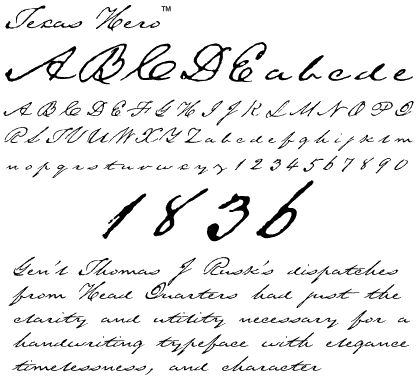 Texas Hero™
A B C D E a b c d e
A B C D E F G H I J K L M N O P Q
R S T U V W X Y Z a b c d e f g h i j k l m
n o p q r s t u v w x y z 1 2 3 4 5 6 7 8 9 0
1 8 3 6
Gen'l Thomas J Rusk's dispatches
from Head Quarters had just the
clarity and utility necessary for a
handwriting typeface with elegance
timelessness, and character